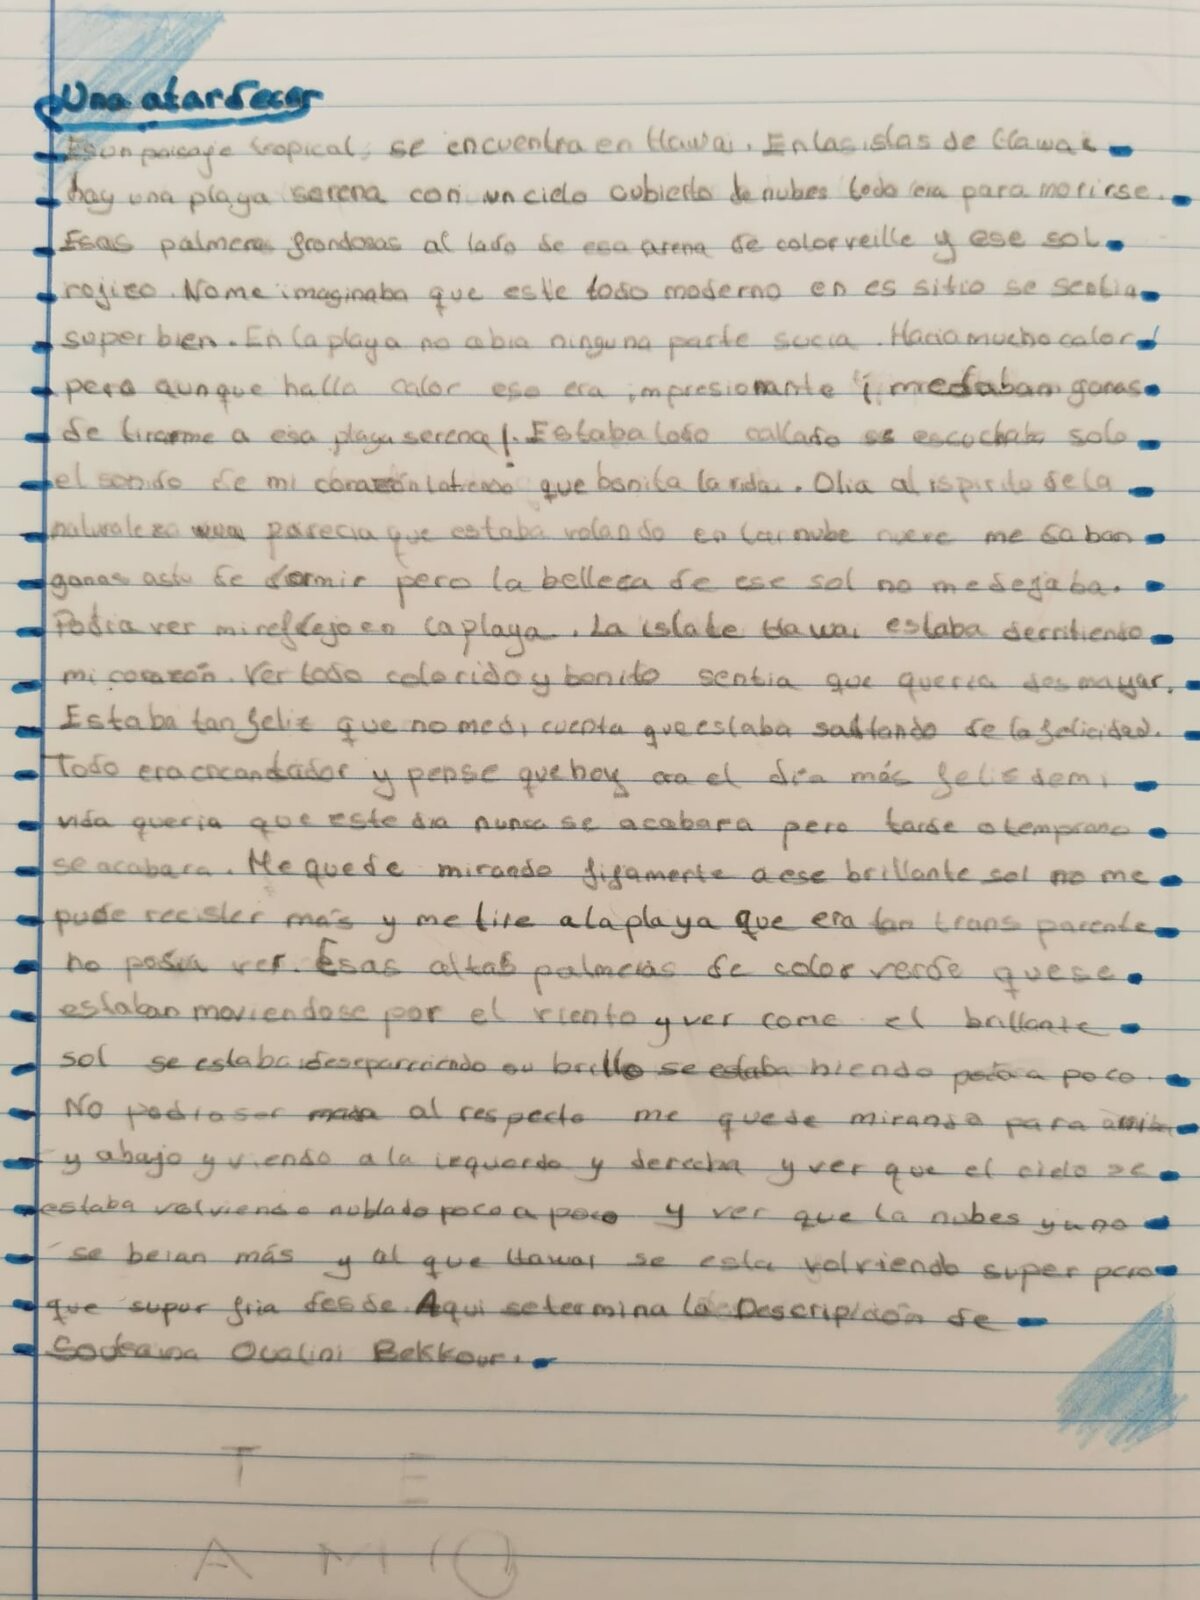 Una atardecer
Es un paisaje tropical, se encuentra en Hawai. En las islas de Hawai
hay una playa serena con un cielo cubierto de nubes todo era para morirse.
Esas palmeras frondosas al lado de esa arena de color veille y ese sol
rojizo. No me imaginaba que este todo moderno en es sitio se sentia
super bien. En la playa no abia ninguna parte sucia. Hacia mucho calor
pero aunque halla calor eso era impresionante ¡ me daban ganas
de tirarme a esa playa serena!. Estaba todo callado se escuchaba solo
el sonido de mi corazón latiendo que bonita la vida. Olia al ispirito de la
naturaleza parecia que estaba volando en me daban
ganas de dormir pero la belleza de ese sol no me dejaba.
Podia ver mi reflejo en la playa. La isla de Hawai estaba derritiendo
mi corazón. Ver todo colorido y bonito sentia que queria desmayar.
Estaba tan feliz que no me di cuenta que estaba saltando de la felicidad.
Todo era encantador y pense que hoy era el dia más felis de mi
vida queria que este dia nunca se acabara pero tarde o temprano
se acabara. Me quede mirando fijamente a ese brillante sol no me
pude recister más y me tire a la playa que era tan trans parente
no podia ver. Esas altas palmeras de color verde que se
estaban moviendose por el viento y ver come el brillante
sol se estaba desepareciendo su brillo se estaba hiendo poco a poco.
No podia ser al respecto me quede mirando para
y abajo y viendo a la izquerda y derecha y ver que el cielo se
estaba volviendo nublado poco a poco y ver que la nubes ya no
se beian más y al que Hawai se esta volviendo super pero
que super fria desde. Aqui se termina la Descripción de
Soukaina Oualini Bekkour.
T E
A M O